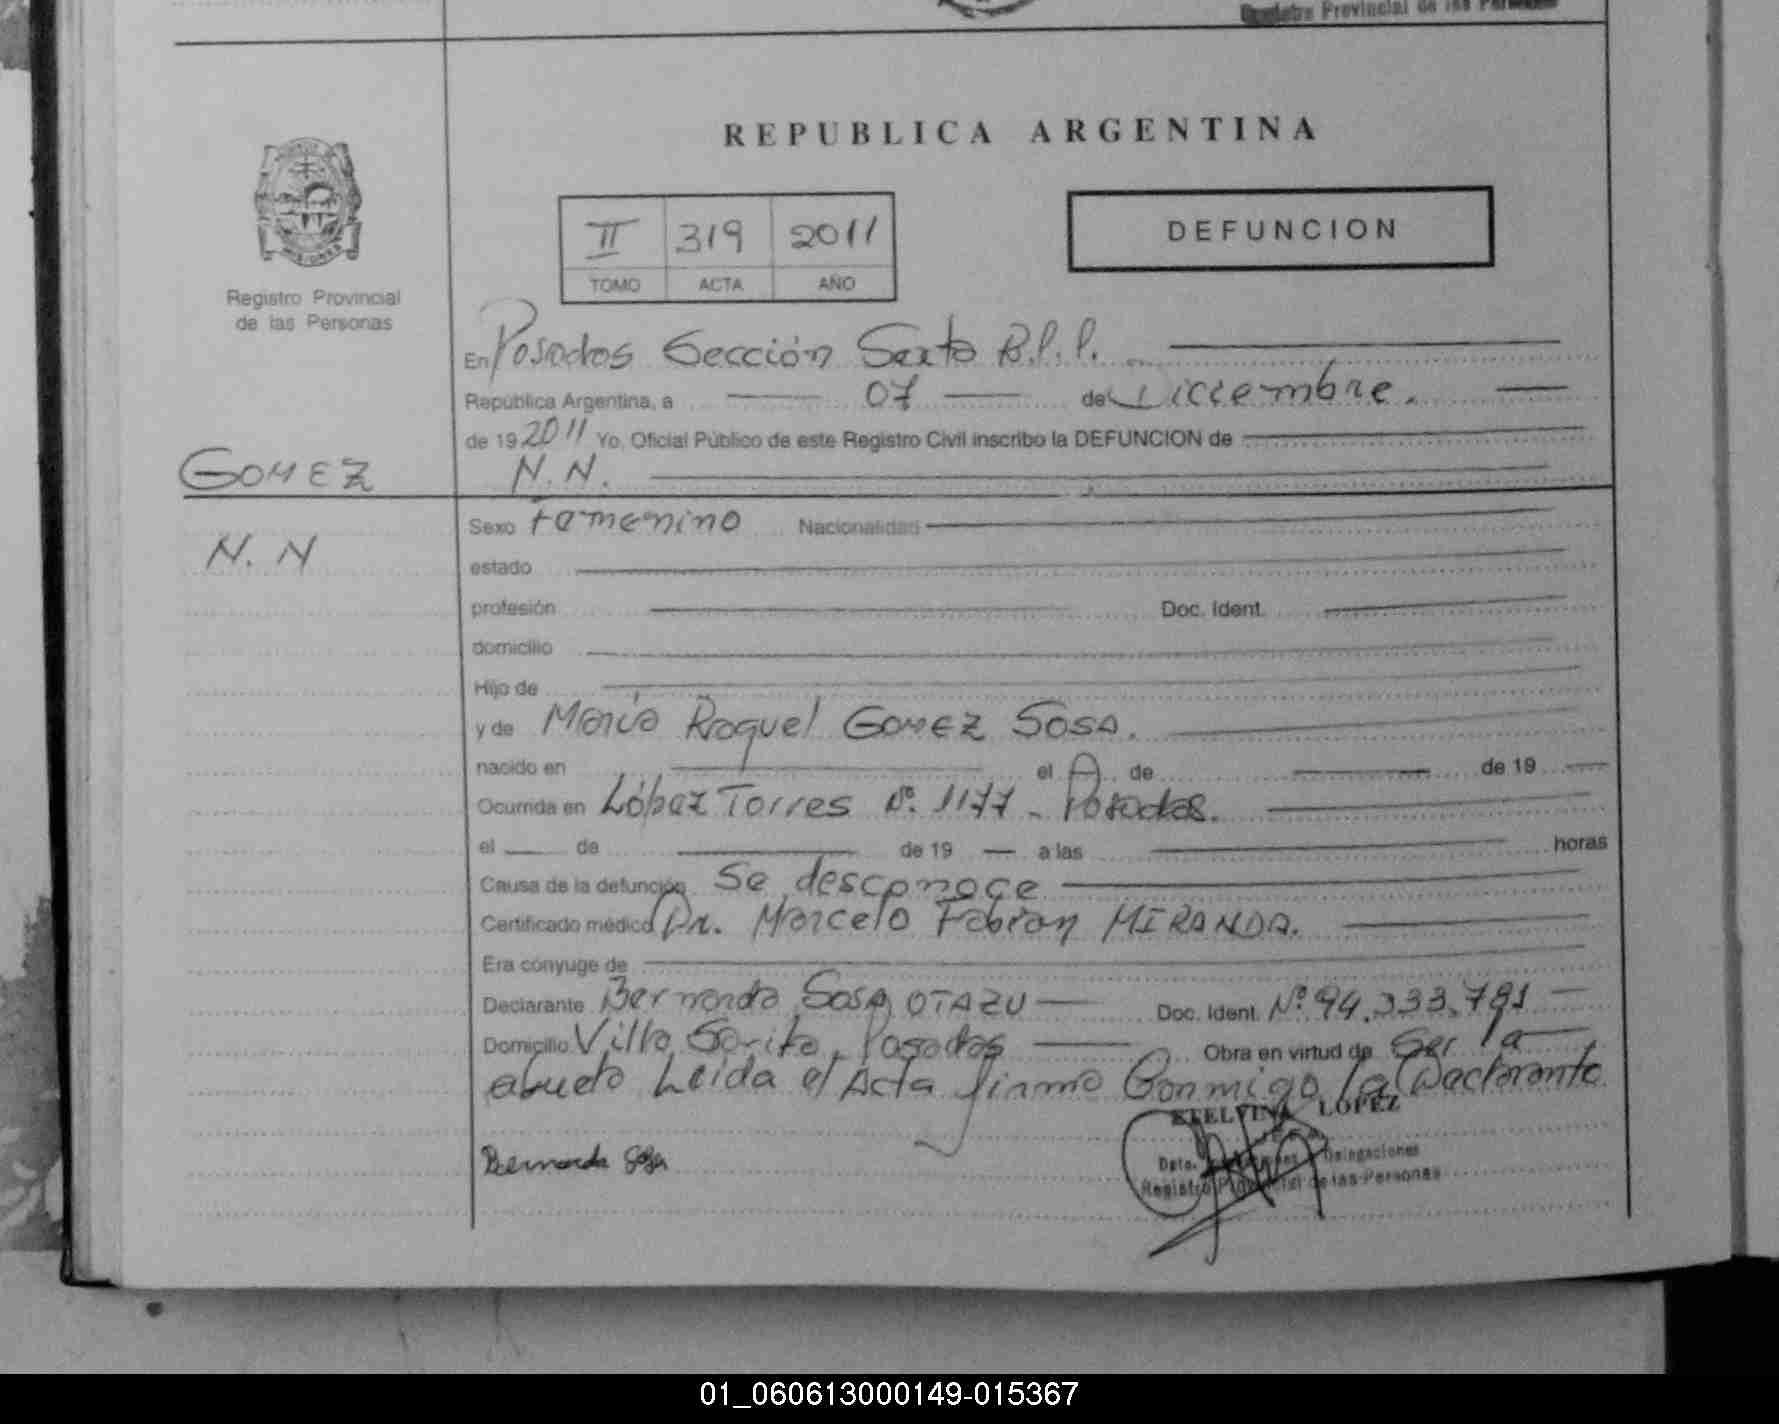 Registro Provincial de las Personas
REPUBLICA ARGENTINA
II 319 2011
TOMO ACTA AÑO
DEFUNCION
MISIONES
Registro Provincial
de las Personas
En Posadas Sección Sexta B.P.P.
República Argentina, a 07 de Diciembre.
de 19 2011 Yo, Oficial Público de este Registro Civil inscribo la DEFUNCION de
GOMEZ
N.N.
N.N
Sexo Femenino Nacionalidad
estado
profesión Doc. Ident.
domicilio
Hijo de
y de María Raquel GOMEZ SOSA.
nacido en el de de 19
Ocurrida en López Torres Nº. 1177 - Posadas.
el de de 19 a las horas
Causa de la defunción Se desconoce
Certificado médico Dr. Marcelo Fabian MIRANDA.
Era cónyuge de
Declarante Bernarda SOSA OTAZU Doc. Ident. Nº. 94.333.781
Domicilio Villa Sarita, Posadas Obra en virtud de Ser la
abuela Leida el Acta firma Conmigo la Declarante
Bernarda Sosa
ETELVINA LOPEZ
Dpto. Delegaciones
Registro Provincial de las Personas
01_060613000149-015367